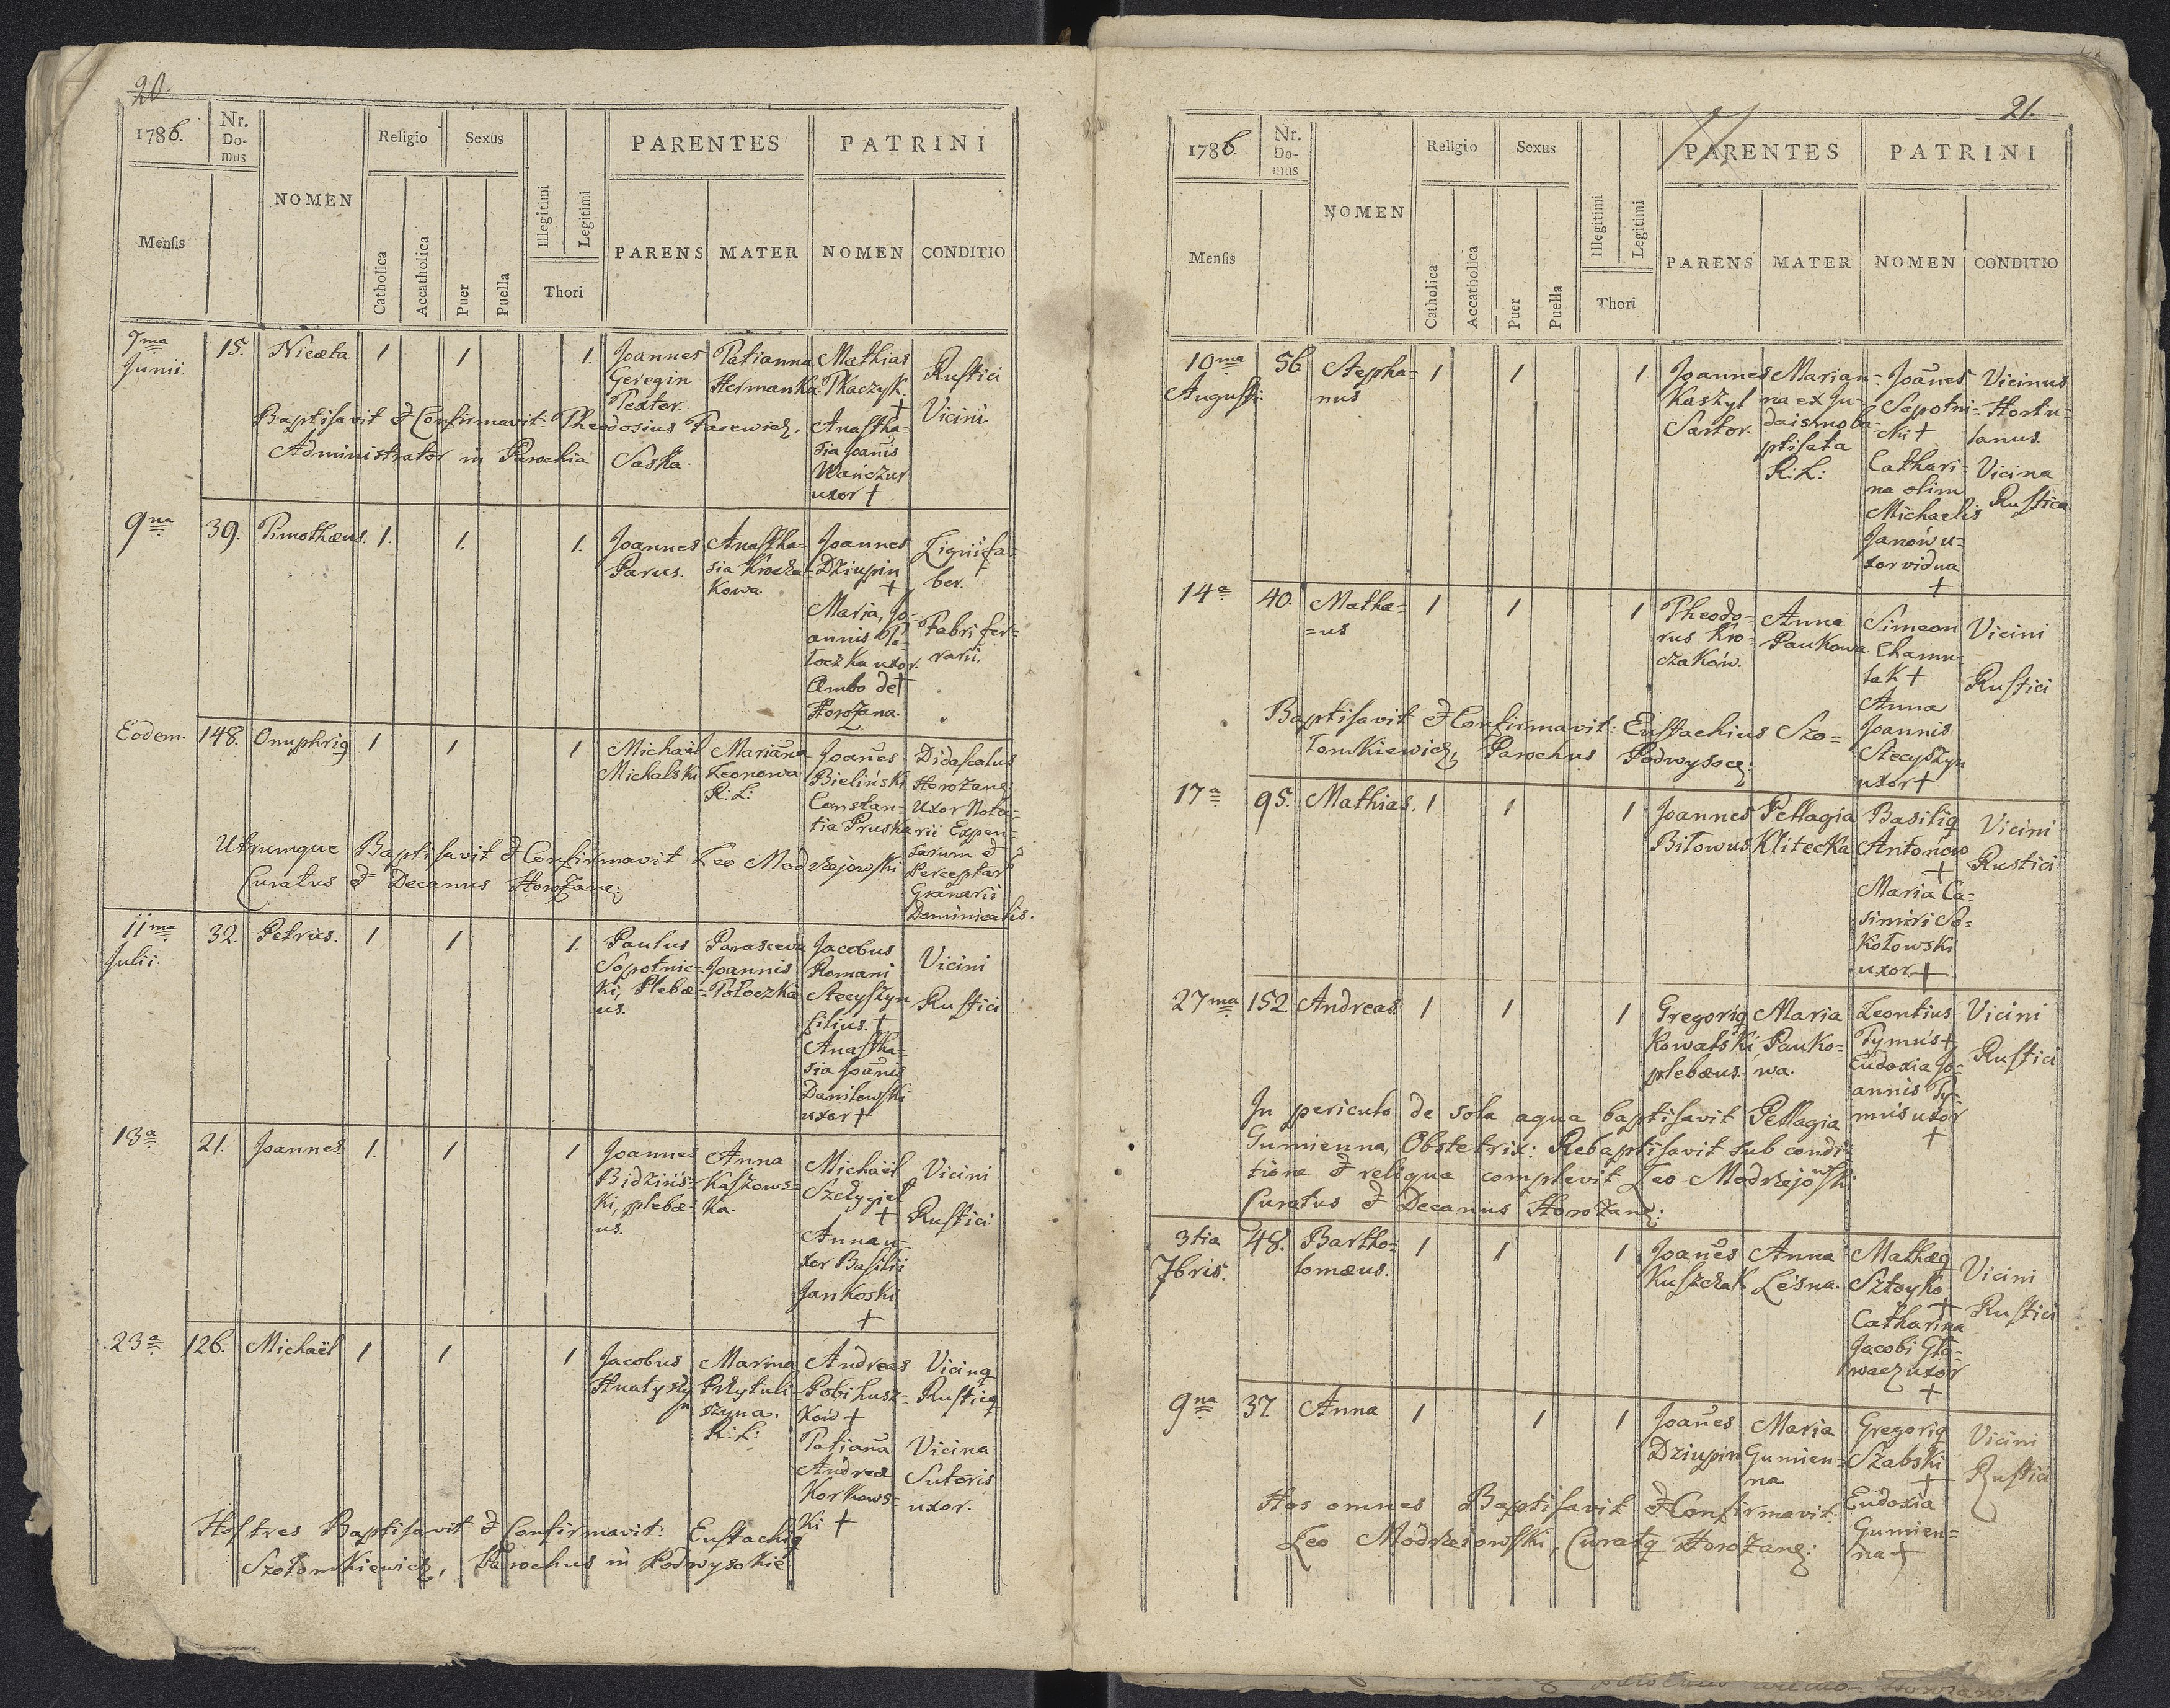 20.
1786.
Nr.
Do-
mus
NOMEN
Religio
Sexus
Illegitimi
Legitimi
PARENTES
PATRINI
Menſis
Catholica
Accatholica
Puer
Puella
Thori
PARENS
MATER
NOMEN
CONDITIO
7ma
Junii.
15.
Nicæta
1
1
1.
Joannes
Geregin
Textor.
Tatianna
Hermanka.
Mathias
Tkaczyk.
+
Anastha-
sia Joañis
Wańczur
uxor +
Rustici
Vicini.
Baptisavit & Confirmavit: Theodosius Facewicz,
Administrator in Parochia Saska.
9na
39.
Timothæus.
1.
1.
1.
Joannes
Parus.
Anastha-
sia Krocza-
Kowa.
Joannes
Dziupin
+
Maria, Jo-
annis To-
łoczka uxor.
Ambo de +
Horożana.
Lignifa-
ber.
Fabri fer-
rarii.
Eodem.
148.
Onuphrig
1
1
1
Michaël
Michalski
Mariana
Leonowa
R: L:
Joañes
Bieliński
Constan-
tia Pruska
Didascalus
Horożane:
Uxor Nota-
rii Expen-
sarum &
Perceptar
Granarii
Dominicalis.
Utrumque Baptisavit & Confirmavit Leo Modrzejowski
Curatus & Decanus Horożane:
11ma
Julii.
32.
Petrus.
1
1
1.
Paulus
Sopotnic-
ki, Plebæ-
us.
Parasceva
Joannis
Tołoczka
Jacobus
Romani
Stecyszyn
filius. +
Anastha-
sia Joañis
Danilowski
uxor +
Vicini
Rustici
13a
21.
Joannes
1.
1
1
Joannes
Bidzińs-
ki, plebæ-
us.
Anna
Kaszows-
ka.
Michaël
Szczygieł
+
Anna u-
xor Basilii
Jankoski
+
Vicini
Rustici
23a
126.
Michaël
1
1
1
Jacobus
Hnatyszyn
Marina
Przytuli-
szyna.
R: L:
Andreas
Pobihusz-
ków +
Tatiaña
Andreæ
Korkows-
ki +
Vicing
Rusticg
Vicina
Sutoris
uxor.
Hos tres Baptisavit & Confirmavit: Eustachig
Szołomkiewicz, Parochus in Podwysokie
21.
1786.
Nr.
Do-
mus
NOMEN
Religio
Sexus
Illegitimi
Legitimi
PARENTES
PATRINI
Menſis
Catholica
Accatholica
Puer
Puella
Thori
PARENS
MATER
NOMEN
CONDITIO
10ma
Augusti
56.
Stepha-
nus
1
1
1
Joannes
Kaszyl
Sartor.
Marian-
na ex Ju-
daismo ba-
ptisata
R: L:
Joañes
Sopotni-
cki +
Cathari-
na olim
Michaelis
Janów u-
xor vidua
+
Vicinus
Hortu-
lanus.
Vicina
Rustica.
14a
40.
Mathæ-
=us
1
1
1
Theodo-
rus Kro-
czaków.
Anna
Paukowa.
Simeon
Chamu-
lak +
Anna
Joannis
Stecyszyn
uxor +
Vicini
Rustici
Baptisavit & Confirmavit: Eustachius Szo-
łomkiewicz, Parochus Podwysoce:
17a
95.
Mathias.
1
1
1
Joannes
Biłowus
Pellagia
Klitecka
Basilig
Antonow
+
Maria Ca-
simiri So-
kołowski
uxor +
Vicini
Rustici
27ma
152.
Andreas
1
1
1
Gregorig
Kowalski,
plebæus.
Maria
Pauko-
wa.
Leontius
Tymuś +
Eudoxia Jo-
annis Ty-
muś uxor
+
Vicini
Rustici
In periculo de sola aqua baptisavit Pellagia
Gumienna, Obstetrix: Rebaptisavit sub condi-
tione & reliqua complevit Leo Modrzejowski
Curatus & Decanus Horożane:
3tia
7bris.
48.
Bartho-
lomæus.
1
1
1
Joañes
Kuszczak
Anna
Leśna.
Mathæg
Sztoyko
+
Catharina
Jacobi Gło-
wacz uxor
+
Vicini
Rustici
9na
37.
Anna
1
1
1
Joañes
Dziupin
Maria
Gumien-
na
Gregorig
Szabski
+
Eudoxia
Gumien-
na +
Vicini
Rustici
Hos omnes Baptisavit & Confirmavit.
Leo Modrzeiowski, Curatg Horożane: